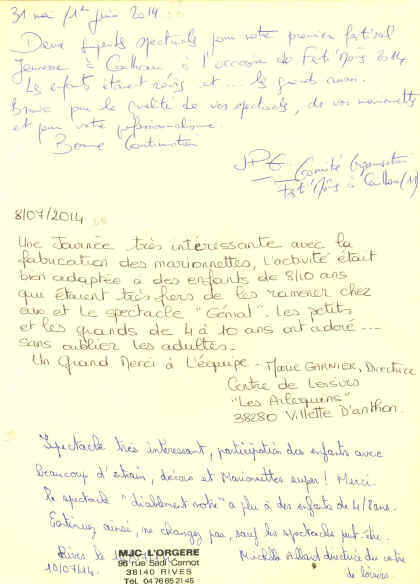 31 mai / 1er juin 2014
Deux superbes spectacles pour notre premier festival
Jeunesse à Cailhau à l'occasion de Festi'Mômes 2014
Les enfants étaient ravis et ... les grands aussi.
Bravo pour la qualité de vos spectacles, de vos marionnettes
et pour votre professionnalisme
Bonne Continuation
Comité Organisation
8/07/2014
Une Journée très intéressante avec la
fabrication des marionnettes, l'activité était
bien adaptée a des enfants de 8/10 ans
qui étaient très fiers de les ramener chez
eux et le spectacle "Génial". Les petits
et les grands de 4 à 10 ans ont adoré ...
sans oublier les adultes.
Un Grand Merci à l'équipe - Marie GARNIER, Directrice
Centre de Loisirs
"Les Arlequins"
38280 Villette D'anthon.
Spectacle très intéressant, participation des enfants avec
beaucoup d'entrain, décors et Marionnettes super ! Merci.
Le spectacle "diablement notre" a plu à des enfants de 4/8 ans.
Continuez ainsi, ne changez pas, sauf les spectacles peut-être.
Rives le
10/07/14.
MJC L'ORGERE
96 rue Sadi Carnot
38140 RIVES
Tél. 04 76 65 21 45
directrice du centre
de loisirs.